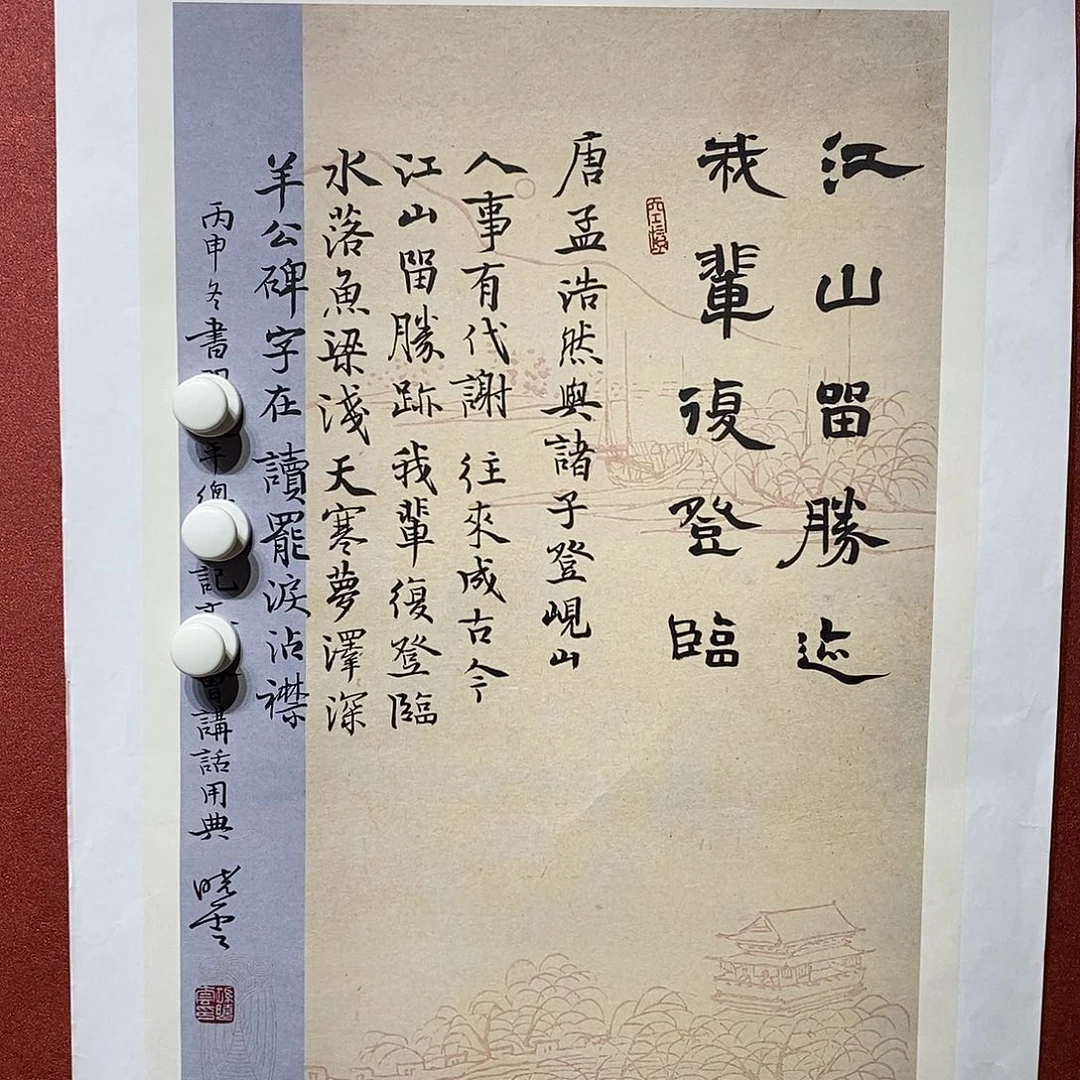 江山畱勝迹
我輩復登臨
唐孟浩然與諸子登峴山
人事有代謝往來成古今
江山畱勝跡我輩復登臨
水落魚梁淺天寒夢澤深
羊公碑字在讀罷淚沾襟
丙申冬書 年總 記 講話用典
曉雲